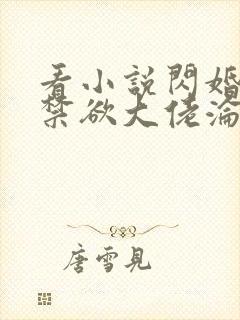 看小說閃婚
禁欲大佬淪
唐雪見